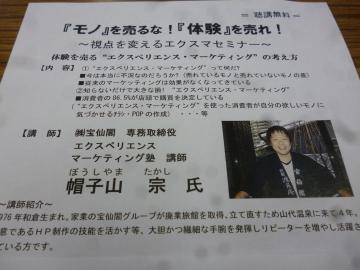 ＝ 聴講無料＝
『モノ』を売るな！『体験』を売れ！
～視点を変えるエクスマセミナー～
体験を売る “エクスペリエンス・マーケティング” の考え方
【内 容】 ①“エクスペリエンス・マーケティング” って何だ?
■今は本当に不況なのだろうか? （売れているモノと売れていないモノの差）
■従来のマーケティングは効果がなくなってきている
②知らないだけで大きな損! “エクスペリエンス・マーケティング”
■消費者の86.5%が店頭で購買を決定している
■“エクスペリエンス・マーケティング” を使った消費者が自分の欲しいモノに
気づかせるﾁﾗｼ・POPの作成 ・・・等
【講 師】 ㈱宝仙閣 専務取締役
エクスペリエンス
マーケティング塾 講師
ぼうしやま たかし
帽子山 宗 氏
～講師紹介～
976年和倉生まれ。家業の宝仙閣グループが廃業旅館を取得、立て直すため山代温泉に来て４年。
意であるＨＰ制作の技能を活かす等、大胆かつ繊細な手腕を発揮しリピーターを増やし活躍さ
ている方です。